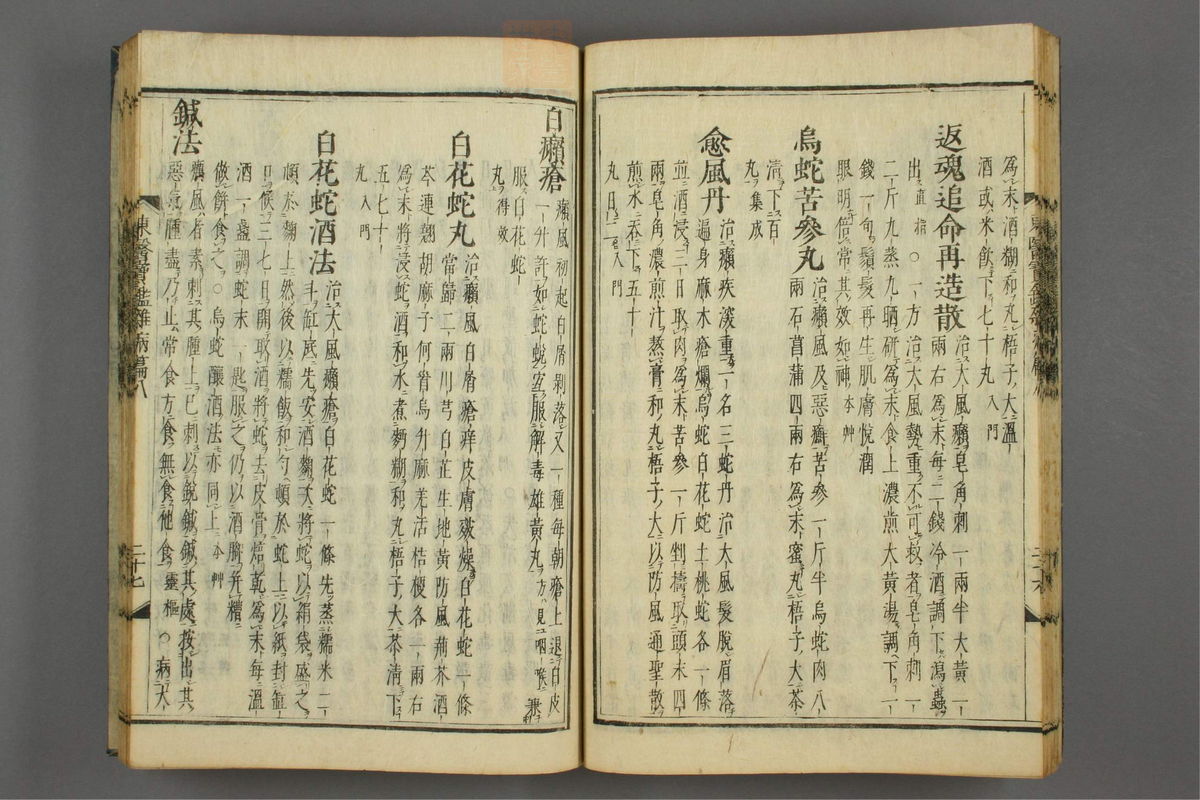 爲末酒糊和丸梧子大溫
酒或米飮下七十丸入門
返魂追命再造散治大風癩皂角刺一兩半大黃一
兩右爲末每二錢冷酒調下瀉蟲
出直指○一方治大風勢重不可救者皂角刺一
二斤九蒸九晒硏爲末食上濃煎大黃湯調下一
錢一旬鬚髮再生肌膚悅潤
眼明倍常其效如神本艸
烏蛇苦參丸治癩風及惡瘡苦參一斤半烏蛇肉八
兩石菖蒲四兩右爲末蜜丸梧子大茶
淸下三百
丸集成
愈風丹治癩疾深重一名三蛇丹治大風髮脫眉落
遍身麻木瘡爛烏蛇白花蛇土桃蛇各一條
並酒浸三日取肉爲末苦參一斤剉擣取頭末四
兩皂角濃煎汁蒸膏和丸梧子大以防風通聖散
煎水呑下五十
丸日二入門
東醫寶鑑雜病篇八
白癩瘡癩風初起白屑剝落又一種每朝瘡上退白皮
一升許如蛇蛻宜服解毒雄黃丸方見咽喉兼
服白花蛇
丸得效
白花蛇丸治癩風白屑瘡痒皮膚皴燥白花蛇一條
當歸二兩川芎白芷生地黃防風荊芥酒
芩連翹胡麻子何首烏升麻羌活桔梗各一兩右
爲末將浸蛇酒和水煮麪糊和丸梧子大茶淸下
五七十
丸入門
白花蛇酒法治大風癩瘡白花蛇一條先蒸糯米二
斗缸底先安酒麴次將蛇以絹袋盛之
頓於麴上然後以糯飯和勻頓於蛇上以紙封缸
口候三七日開取酒將蛇去皮骨焙乾爲末每溫
酒一盞調蛇末一匙服之仍以酒脚幷糟
做餠食之○烏蛇釀酒法亦同上本艸
鍼法癩風者素刺其腫上已刺以銳鍼鍼其處按出其
惡氣腫盡乃止常食方食無食他食靈樞○病大
東醫寶鑑雜病篇八
二十七